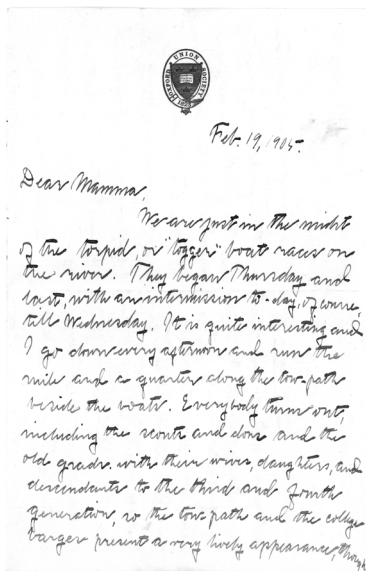 OXFORD UNION SOCIETY
Feb. 19, 1905.
Dear Mamma,
We are just in the midst
of the torpid, or "togger" boat races on
the river. They began Thursday and
last, with an intermission to-day, of course,
till Wednesday. It is quite interesting and
I go down every afternoon and run the
mile and a quarter along the tow-path
beside the boats. Everybody turns out,
including the scouts and dons and the
old grads. with their wives, daughters, and
descendants to the third and fourth
generation, so the tow-path and the college
barges present a very lively appearance, though